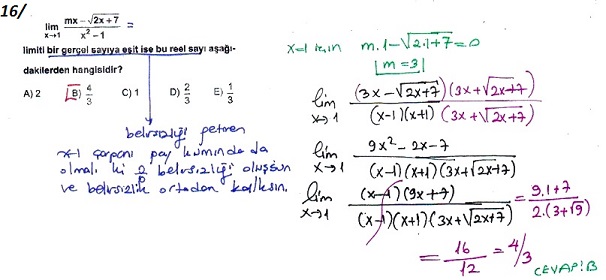 16/
lim x→1 (mx − √(2x+7)) / (x² − 1) =
limiti bir gerçel sayıya eşit ise bu reel sayı aşağı-
dakilerden hangisidir?
A) 2 B) 4/3 C) 1 D) 2/3 E) 1/3
belirsizliği getiren
x-1 çarpanı pay kısmında da
olmalı ki 0/0 belirsizliği oluşsun
ve belirsizlik ortadan kalksın.
x=1 için m.1 − √(2.1+7) = 0
m = 3
lim x→1 (3x − √(2x+7)) (3x + √(2x+7)) / (x−1)(x+1) (3x + √(2x+7))
lim x→1 9x² − 2x − 7 / (x−1)(x+1)(3x + √(2x+7))
lim x→1 (x−1)(9x+7) / (x−1)(x+1)(3x + √(2x+7)) = 9.1+7 / 2.(3+√9)
= 16/12 = 4/3
CEVAP: B